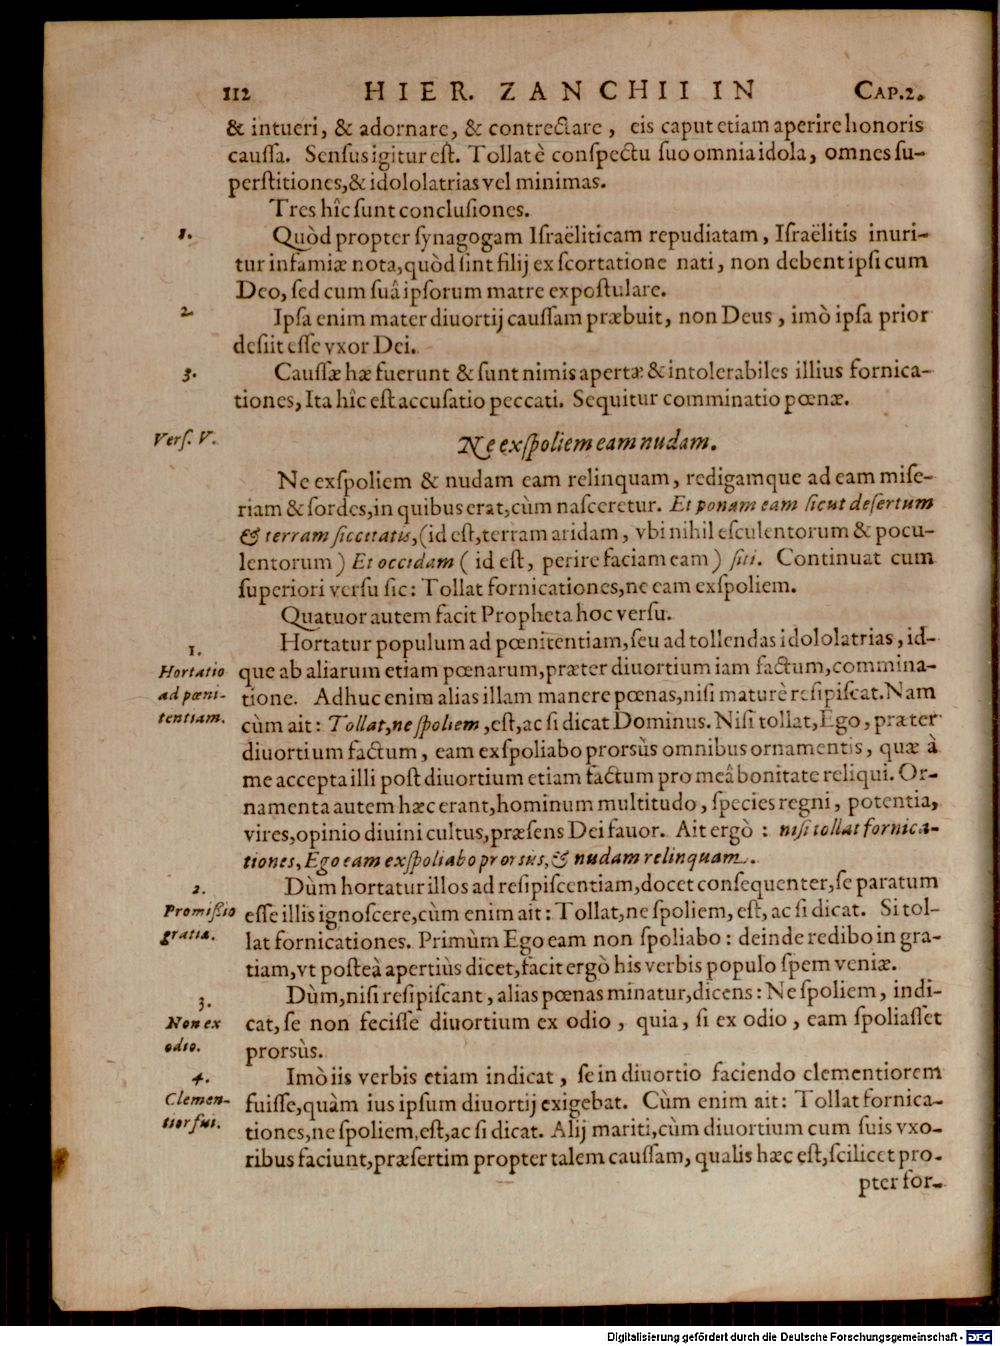 112 HIER. ZANCHII IN CAP.2.
& intueri, & adornare, & contrectare, eis caput etiam aperire honoris
caussa. Sensus igitur est. Tollat è conspectu suo omnia idola, omnes su-
perstitiones, & idololatrias vel minimas.
Tres hîc sunt conclusiones.
1. Quòd propter synagogam Israëliticam repudiatam, Israëlitis inuri-
tur infamiæ nota, quòd sint filij ex scortatione nati, non debent ipsi cum
Deo, sed cum suâ ipsorum matre expostulare.
2. Ipsa enim mater diuortij caussam præbuit, non Deus, imò ipsa prior
desiit esse vxor Dei.
3. Caussæ hæ fuerunt & sunt nimis apertæ & intolerabiles illius fornica-
tiones, Ita hîc est accusatio peccati. Sequitur comminatio pœnæ.
Vers. V. Ne exspoliem eam nudam.
Ne exspoliem & nudam eam relinquam, redigamque ad eam mise-
riam & sordes, in quibus erat, cùm nasceretur. Et ponam eam sicut desertum
& terram siccitatis, (id est, terram aridam, vbi nihil esculentorum & pocu-
lentorum) Et occidam (id est, perire faciam eam) siti. Continuat cum
superiori versu sic: Tollat fornicationes, ne eam exspoliem.
Quatuor autem facit Propheta hoc versu.
1. Hortatur populum ad pœnitentiam, seu ad tollendas idololatrias, id-
Hortatio que ab aliarum etiam pœnarum, præter diuortium iam factum, commina-
ad pœni- tione. Adhuc enim alias illam manere pœnas, nisi maturè resipiscat. Nam
tentiam. cùm ait: Tollat, ne spoliem, est, ac si dicat Dominus. Nisi tollat, Ego, præter
diuortium factum, eam exspoliabo prorsùs omnibus ornamentis, quæ à
me accepta illi post diuortium etiam factum pro meâ bonitate reliqui. Or-
namenta autem hæc erant, hominum multitudo, species regni, potentia,
vires, opinio diuini cultus, præsens Dei fauor. Ait ergò: nisi tollat fornica-
tiones, Ego eam exspoliabo prorsus, & nudam relinquam.
2. Dùm hortatur illos ad resipiscentiam, docet consequenter, se paratum
Promissio esse illis ignoscere, cùm enim ait: Tollat, ne spoliem, est, ac si dicat. Si tol-
gratiæ. lat fornicationes. Primùm Ego eam non spoliabo: deinde redibo in gra-
tiam, vt posteà apertiùs dicet, facit ergò his verbis populo spem veniæ.
3. Dùm, nisi resipiscant, alias pœnas minatur, dicens: Ne spoliem, indi-
Non ex cat, se non fecisse diuortium ex odio, quia, si ex odio, eam spoliasset
odio. prorsùs.
4. Imò iis verbis etiam indicat, se in diuortio faciendo clementiorem
Clemen- fuisse, quàm ius ipsum diuortij exigebat. Cùm enim ait: Tollat fornica-
tior fui. tiones, ne spoliem, est, ac si dicat. Alij mariti, cùm diuortium cum suis vxo-
ribus faciunt, præsertim propter talem caussam, qualis hæc est, scilicet pro-
pter for-
Digitalisierung gefördert durch die Deutsche Forschungsgemeinschaft - DFG